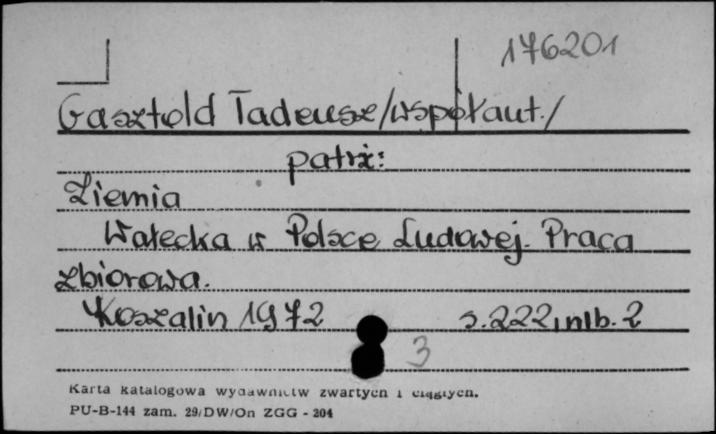 176201
Gasztold Tadeusz/współaut./
patrz:
Ziemia
Wałecka w Polsce Ludowej. Praca
zbiorowa.
Koszalin 1972 s.222, nlb. 2
3
Karta katalogowa wydawnictw zwartych i ciągłych.
PU-B-144 zam. 29/DW/On ZGG - 204